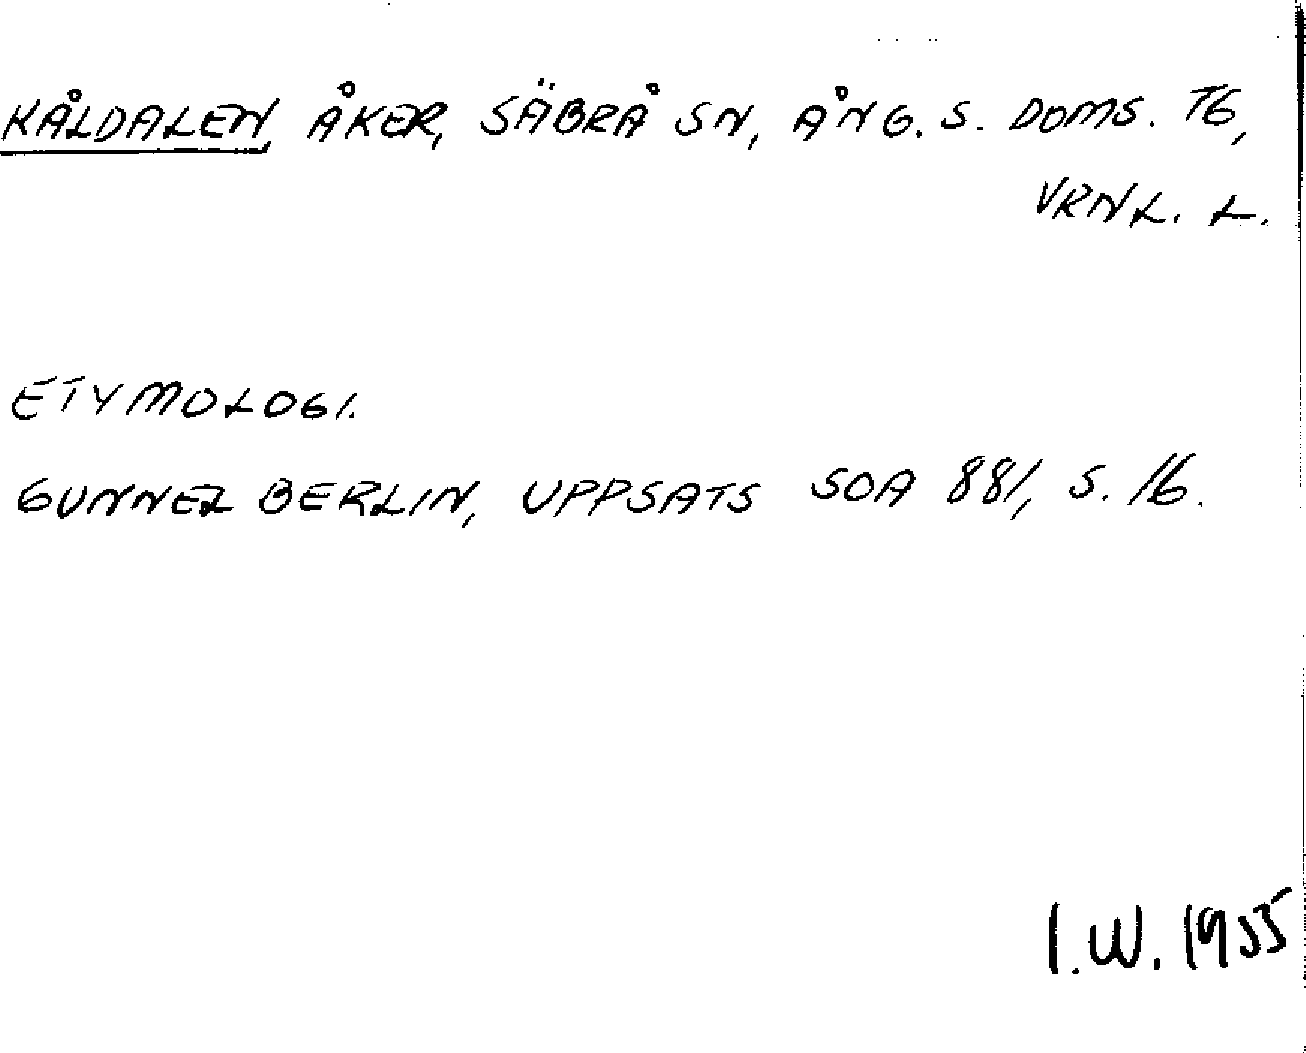 KÅLDALEN, ÅKER, SÄBRÅ SN, ÅNG. S. DOMS. TG,
VRNL. L.
ETYMOLOGI.
GUNNEL BERLIN, UPPSATS SOA 881, S. 16.
I.W. 1955